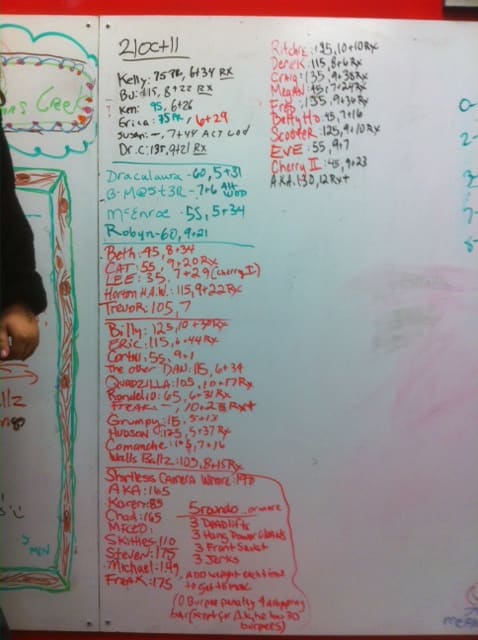 21Oct11
Kelly: 75Rx, 6+34 Rx
BJ: 115, 8+22 Rx
Ken: 95, 6+26
Erica: 75Rx, 6+29
Susan: -, 7+44 Act WOD
Dr. C: 135, 9+21 Rx
Draculaura-60, 5+31
B-M@5t3R-7+6 Alt WOD
McEnroe-55, 5+34
Robyn-60, 9+21
Beth: 45, 8+34
CAT: 55, 9+20Rx
LEE: 35, 7+29 (cherry I)
Horton H.A.W.: 115, 9+22Rx
Trevor: 105, 7
Billy: 125, 10+30Rx
Eric: 115, 6+44Rx
55, 9+1
The other DAN: 115, 6+34
QUADZILLA: 105, 10+17Rx
65, 6+31Rx
FREAK: -, 10+2 Rx+
Grumpy: 15, 5+13
Hudson: 125, 5+37Rx
Comanche: 7+16
Walls Ballz: 105, 8+15Rx
Shirtless Camera Whore: 190
AKA: 165
Karen: 85
Chad: 165
Skittles: 110
Steven: 175
Michael: 149
Freak: 175
5 rounds or more
3 Deadlifts
3 Hang Power Cleans
3 Front Squat
3 Jerks
ADD weight each time
to get to max
(10 Burpee penalty 4 dropping
Ritchie: 125, 10+10Rx
Derek: 115, 8+6Rx
Craig: 135, 9+38Rx
Megan: 95, 7+24Rx
135, 9+30Rx
Betty Ho: 45, 7+16
Scooter: 125, 9+10Rx
EVE: 55, 9+7
Cherry II: 45, 9+23
A.K.A: 130, 12Rx+